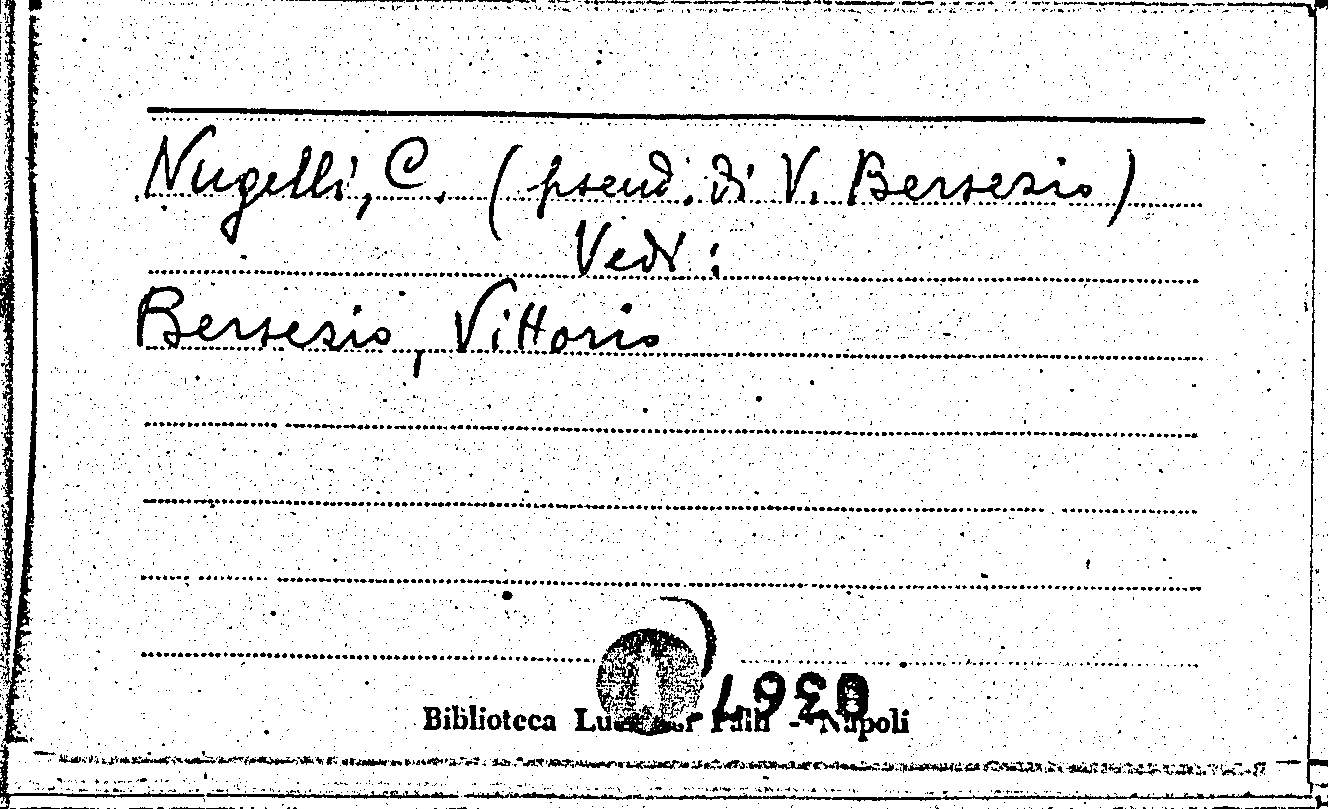 Nugelli, C. (pseud. di V. Bersezio)
Vedi:
Bersezio, Vittorio
Biblioteca Palli - Napoli